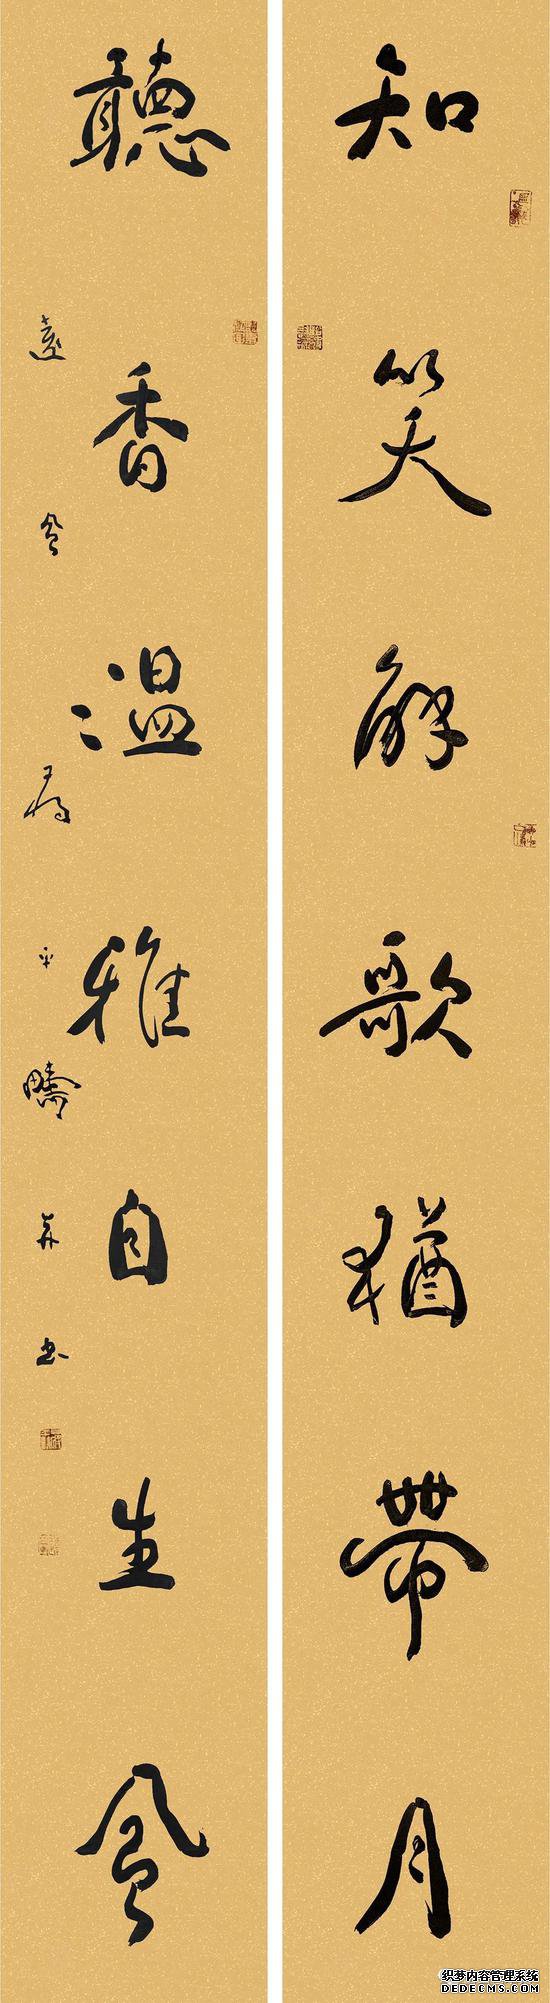 知笑解歌猶帶月
聽香溫雅自生風
遠風
平疇并書
织梦内容管理系统
DEDECMS.COM